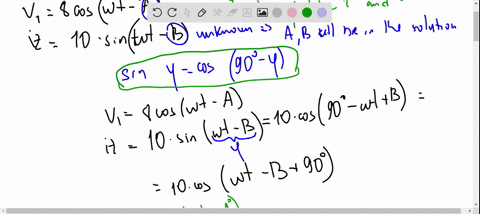 V₁ = 8 cos(wt -
iz = 10 · sin(wt - B) unknown is A, B will be in the solution
sin y = cos (90° - y)
V₁ = 8 cos(wt - A)
iz = 10 · sin (wt - B) = 10 · cos(90° - wt + B) =
y
= 10 · cos (wt - B + 90°)